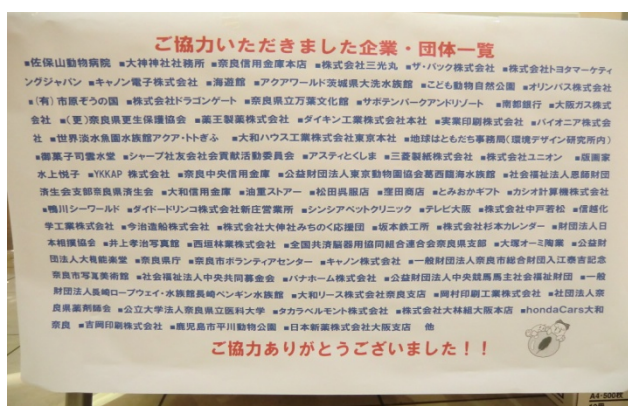 ご協力いただきました企業・団体一覧
■佐保山動物病院 ■大神神社社務所 ■奈良信用金庫本店 ■株式会社三光丸 ■ザ・パック株式会社 ■株式会社トヨタマーケティ
ングジャパン ■キャノン電子株式会社 ■海遊館 ■アクアワールド茨城県大洗水族館 ■こども動物自然公園 ■オリンパス株式会社
■(有)市原ぞうの国 ■株式会社ドラゴンゲート ■奈良県立万葉文化館 ■サボテンパークアンドリゾート ■南都銀行 ■大阪ガス株式
会社 ■(更)奈良県更生保護協会 ■薬王製薬株式会社 ■ダイキン工業株式会社本社 ■実業印刷株式会社 ■パイオニア株式会
社 ■世界淡水魚園水族館アクア・トトぎふ ■大和ハウス工業株式会社東京本社 ■地球はともだち事務局(環境デザイン研究所内)
■御菓子司雲水堂 ■シャープ社友会社会貢献活動委員会 ■アスティとくしま ■三菱製紙株式会社 ■株式会社ユニオン ■版画家
水上悦子 ■YKKAP株式会社 ■奈良中央信用金庫 ■公益財団法人東京動物園協会葛西臨海水族館 ■社会福祉法人恩師財団
済生会支部奈良県済生会 ■大和信用金庫 ■油重ストアー ■松田呉服店 ■窪田商店 ■とみおかギフト ■カシオ計算機株式会社
■鴨川シーワールド ■ダイドードリンコ株式会社新庄営業所 ■シンシアペットクリニック ■テレビ大阪 ■株式会社中戸若松 ■信越化
学工業株式会社 ■今治造船株式会社 ■株式会社大伸社みちのく応援団 ■坂本鉄工所 ■株式会社杉本カレンダー ■財団法人日
本相撲協会 ■井上孝治写真館 ■西垣林業株式会社 ■全国共済脳器用協同組合連合会奈良県支部 ■大塚オーミ陶業 ■公益財
団法人大槻能楽堂 ■奈良県庁 ■奈良市ボランティアセンター ■キャノン株式会社 ■一般財団法人奈良市総合財団入江泰吉記念
奈良市写真美術館 ■社会福祉法人中央共同募金会 ■パナホーム株式会社 ■公益財団法人中央競馬馬主社会福祉財団 ■一般
財団法人長崎ロープウェイ・水族館長崎ペンギン水族館 ■大和リース株式会社奈良支店 ■岡村印刷工業株式会社 ■社団法人奈
良県薬剤師会 ■公立大学法人奈良県立医科大学 ■タカラベルモント株式会社 ■株式会社大林組大阪本店 ■hondaCars大和
奈良 ■吉岡印刷株式会社 ■鹿児島市平川動物公園 ■日本新薬株式会社大阪支店 他
ご協力ありがとうございました!!
A4-500枚